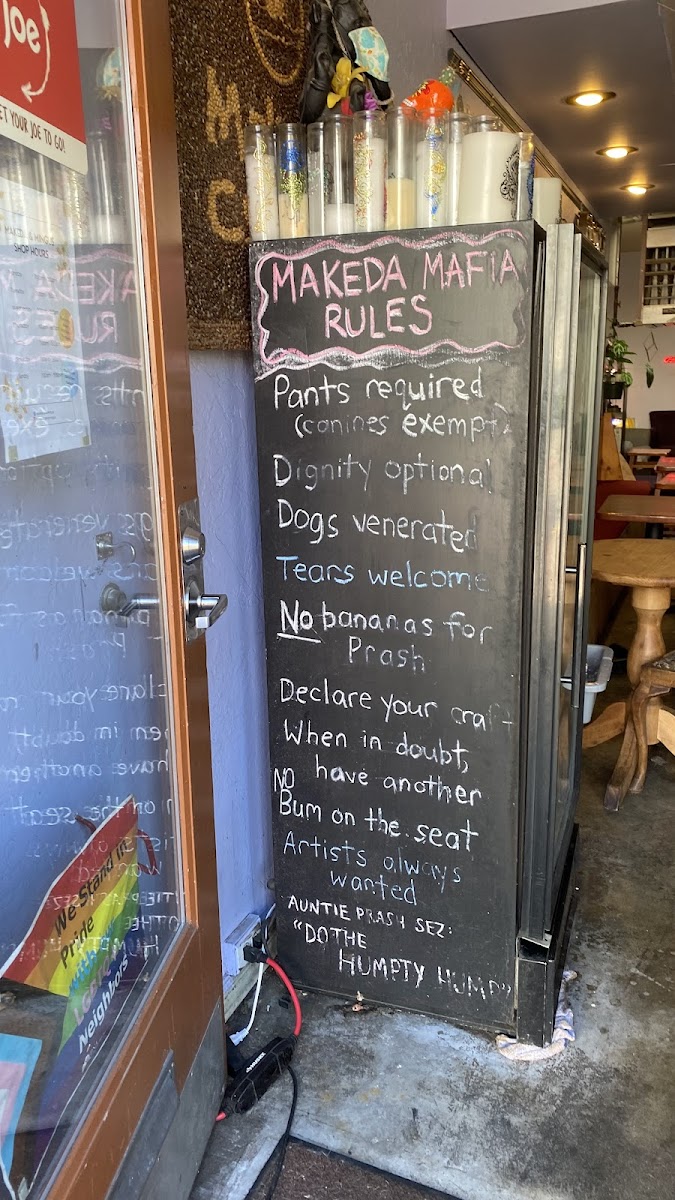 Joe
ET YOUR JOE TO GO!
SHOP HOURS
M
C
MAKEDA MAFIA
RULES
Pants required
(canines exempt)
Dignity optional
Dogs venerated
Tears welcome
No bananas for
Prash
Declare your craft
When in doubt,
have another
NO
Bum on the seat
Artists always
wanted
AUNTIE PRASH SEZ:
"DO THE
HUMPTY HUMP"
We Stand in
Pride
with our
Neighbors